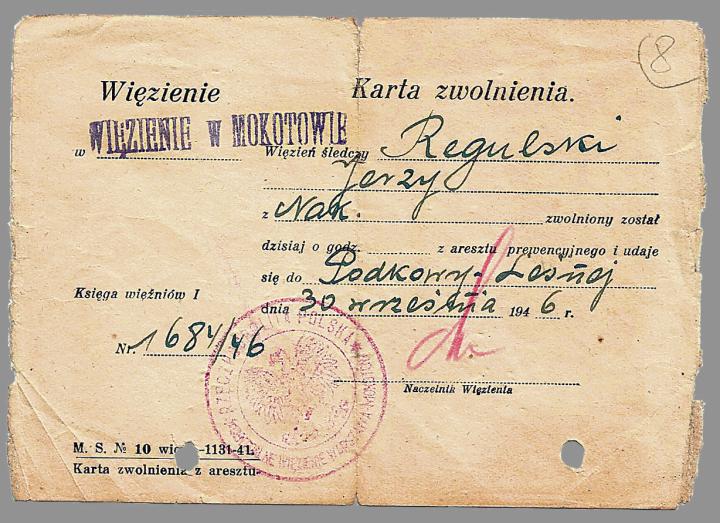 8
Więzienie
Karta zwolnienia.
w WIĘZIENIE W MOKOTOWIE
Więzień śledczy Regulski
Jerzy
z Nak. zwolniony został
dzisiaj o godz. z aresztu prewencyjnego i udaje
się do Podkowy-Leśnej
dnia 30 września 1946 r.
Księga więźniów I
Nr. 1684/46
Naczelnik Więzienia
POLSKA
M. S. № 10 -1131-41.
Karta zwolnienia z aresztu-